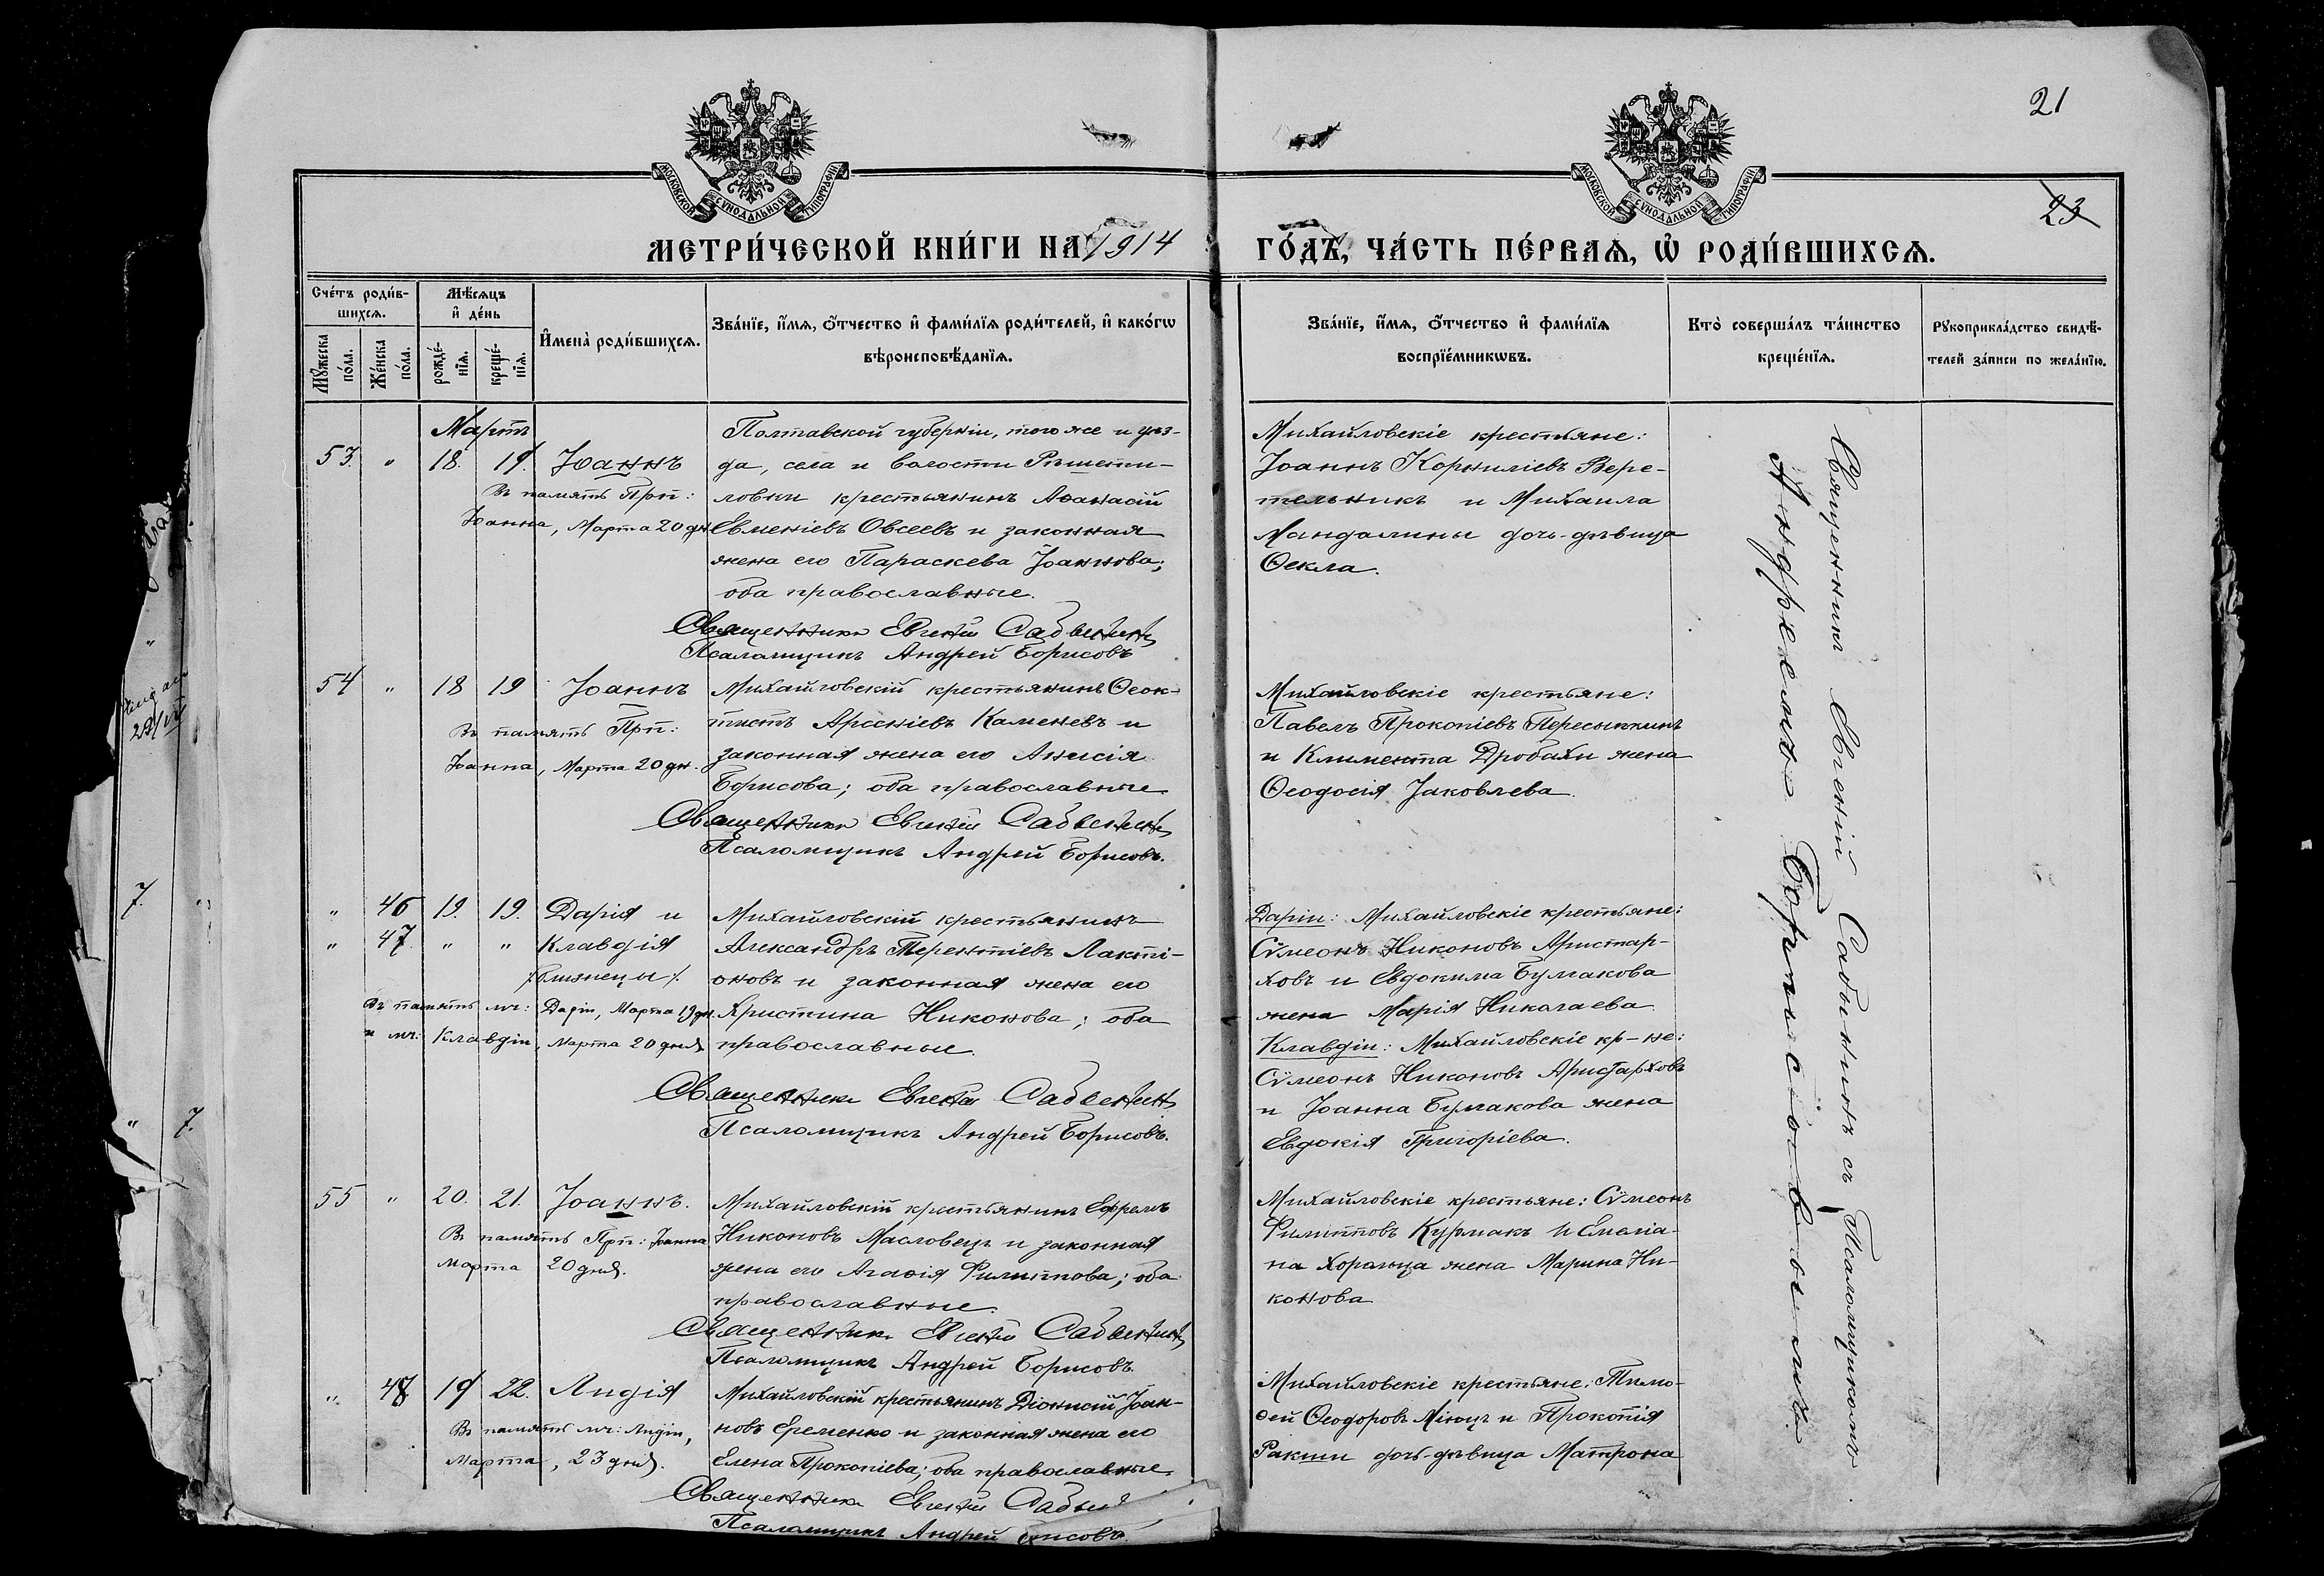 21
23
МОСКОВСКОЙ СѴНОДАЛЬНОЙ ТИПОГРАФІИ
МОСКОВСКОЙ СѴНОДАЛЬНОЙ ТИПОГРАФІИ
МЕТРИ́ЧЕСКОЙ КНИ́ГИ НА 1914
ГО́ДЪ, ЧА́СТЬ ПЕ́РВАѦ, Ѽ РОДИ́ВШИХСѦ.
Сче́тъ роди́в-
шихсѧ.
Мꙋ́жеска по́ла.
Же́нска по́ла.
Мѣ́сѧцъ
и҆ де́нь
рожде́-нїѧ.
креще́-нїѧ.
И҆мена̀ роди́вшихсѧ.
Зва́нїе, и҆́мѧ, ѻ҆́тчество и҆ фами́лїѧ роди́телей, и҆ како́гѡ
вѣроисповѣ́данїѧ.
Зва́нїе, и҆́мѧ, ѻ҆́тчество и҆ фами́лїѧ
воспрїе́мникѡвъ.
Кто̀ соверша́лъ та́инство
креще́нїѧ.
Рꙋкоприкла́дство свидѣ́-
телей за́писи по жела́нїю.
Мартъ
53. " 18. 19. Іоаннъ
Въ память Прп:
Іоанна, Марта 20 дн
Полтавской губерніи, того же и уѣз-
да, села и волости Рѣшети-
ловки крестьянинъ Аѳанасій
Евменіевъ Овсеевъ и законная
жена его Параскева Іоаннова;
оба православные.
Священникъ Евгеній Сабынинъ
Псаломщикъ Андрей Борисовъ
Михайловскіе крестьяне:
Іоаннъ Корниліевъ Вере-
тельникъ и Михаила
Мандалины дочь-дѣвица
Ѳекла.
54 " 18 19 Іоаннъ
Въ память Прп:
Іоанна, Марта 20 дн.
Михайловскій крестьянинъ Ѳеок-
тистъ Арсеніевъ Каменевъ и
законная жена его Анисія
Борисова; оба православные
Священникъ Евгеній Сабынинъ
Псаломщикъ Андрей Борисовъ.
Михайловскіе крестьяне:
Павелъ Прокопіевъ Пересыпкинъ
и Климента Дробахи жена
Ѳеодосія Іаковлева.
" 46 19. 19. Дарія и
" 47. " " Клавдія
/близнецы/.
Въ память мч: Даріи, Марта 19 дн.
и мч: Клавдіи, Марта 20 дня
Михайловскій крестьянинъ
Александръ Терентіевъ Лакті-
оновъ и законная жена его
Христина Никонова; оба
православные.
Священникъ Евгеній Сабынинъ
Псаломщикъ Андрей Борисовъ.
Даріи: Михайловскіе крестьяне:
Сѵмеонъ Никоновъ Аристар-
ховъ и Евдокима Булакова
жена Марія Николаева
Клавдіи: Михайловскіе кр-не:
Сѵмеонъ Никоновъ Аристарховъ
и Іоанна Булакова жена
Евдокія Григоріева.
55 " 20. 21. Іоаннъ.
Въ память Прп: Іоанна
Марта 20 дня.
Михайловскій крестьянинъ Ефремъ
Никоновъ Масловецъ и законная
жена его Агаѳія Филиппова; оба
православные.
Священникъ Евгеній Сабынинъ
Псаломщикъ Андрей Борисовъ.
Михайловскіе крестьяне: Сѵмеонъ
Филипповъ Курмакъ и Емеліа-
на Хорольца жена Марина Ни-
конова
" 48 19 22. Лидія
Въ память мч: Лидіи,
Марта, 23 дня.
Михайловскій крестьянинъ Діонисій Іоан-
новъ Еременко и законная жена его
Елена Прокопіева; оба православные.
Священникъ Евгеній
Псаломщикъ Андрей
Михайловскіе крестьяне: Тимо-
ѳей Ѳеодоровъ и Прокопія
Ракши дочь-дѣвица Матрона
Священникъ Евгеній Сабынинъ съ Псаломщикомъ
Андреемъ Борисовымъ.
7.
" 7.